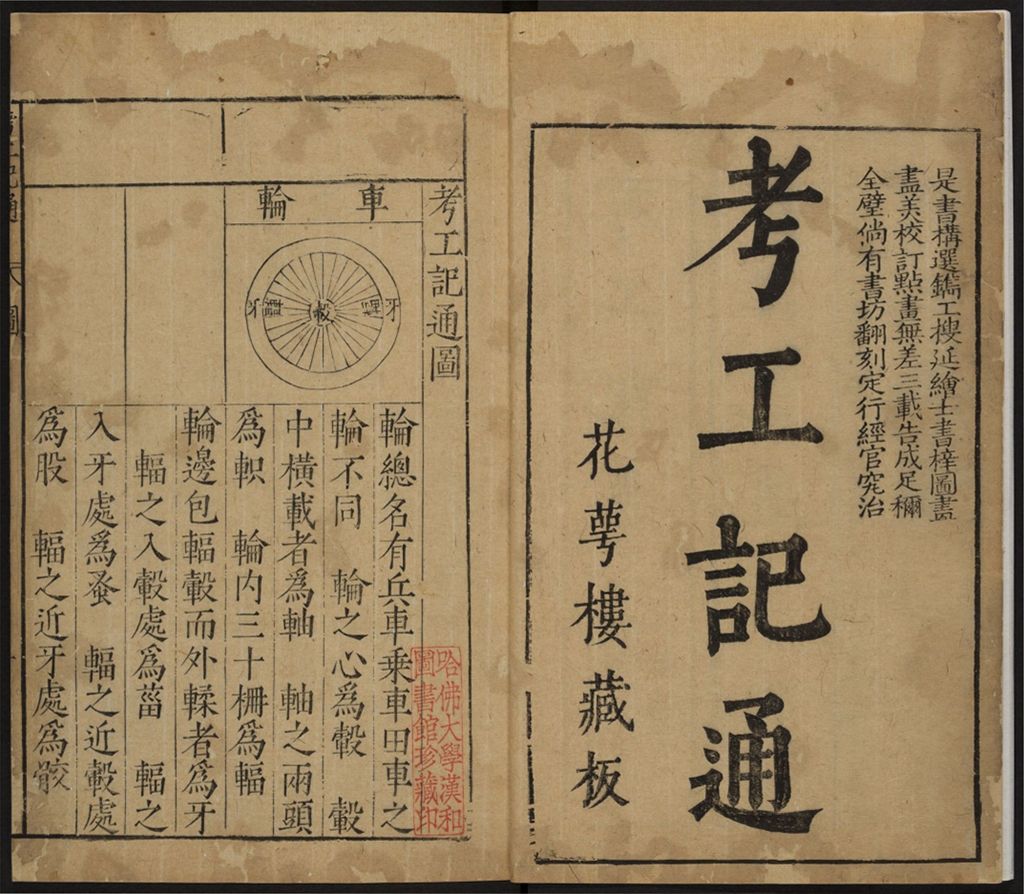 是書構選鐫工搜延繪士書梓圖畫
盡美校訂點畫無差三載告成足穪
全璧倘有書坊翻刻定行經官究治
考工記通
花萼樓藏板
考工記通圖
車輪
牙 輻 轂 輻 牙
輪總名有兵車乗車田車之
輪不同 輪之心爲轂 轂
中橫載者爲軸 軸之兩頭
爲軹 輪内三十柵爲輻
輪邊包輻轂而外輮者爲牙
輻之入轂處爲菑 輻之
入牙處爲蚤 輻之近轂處
爲股 輻之近牙處爲骹
哈佛大學漢和
圖書館珍藏印